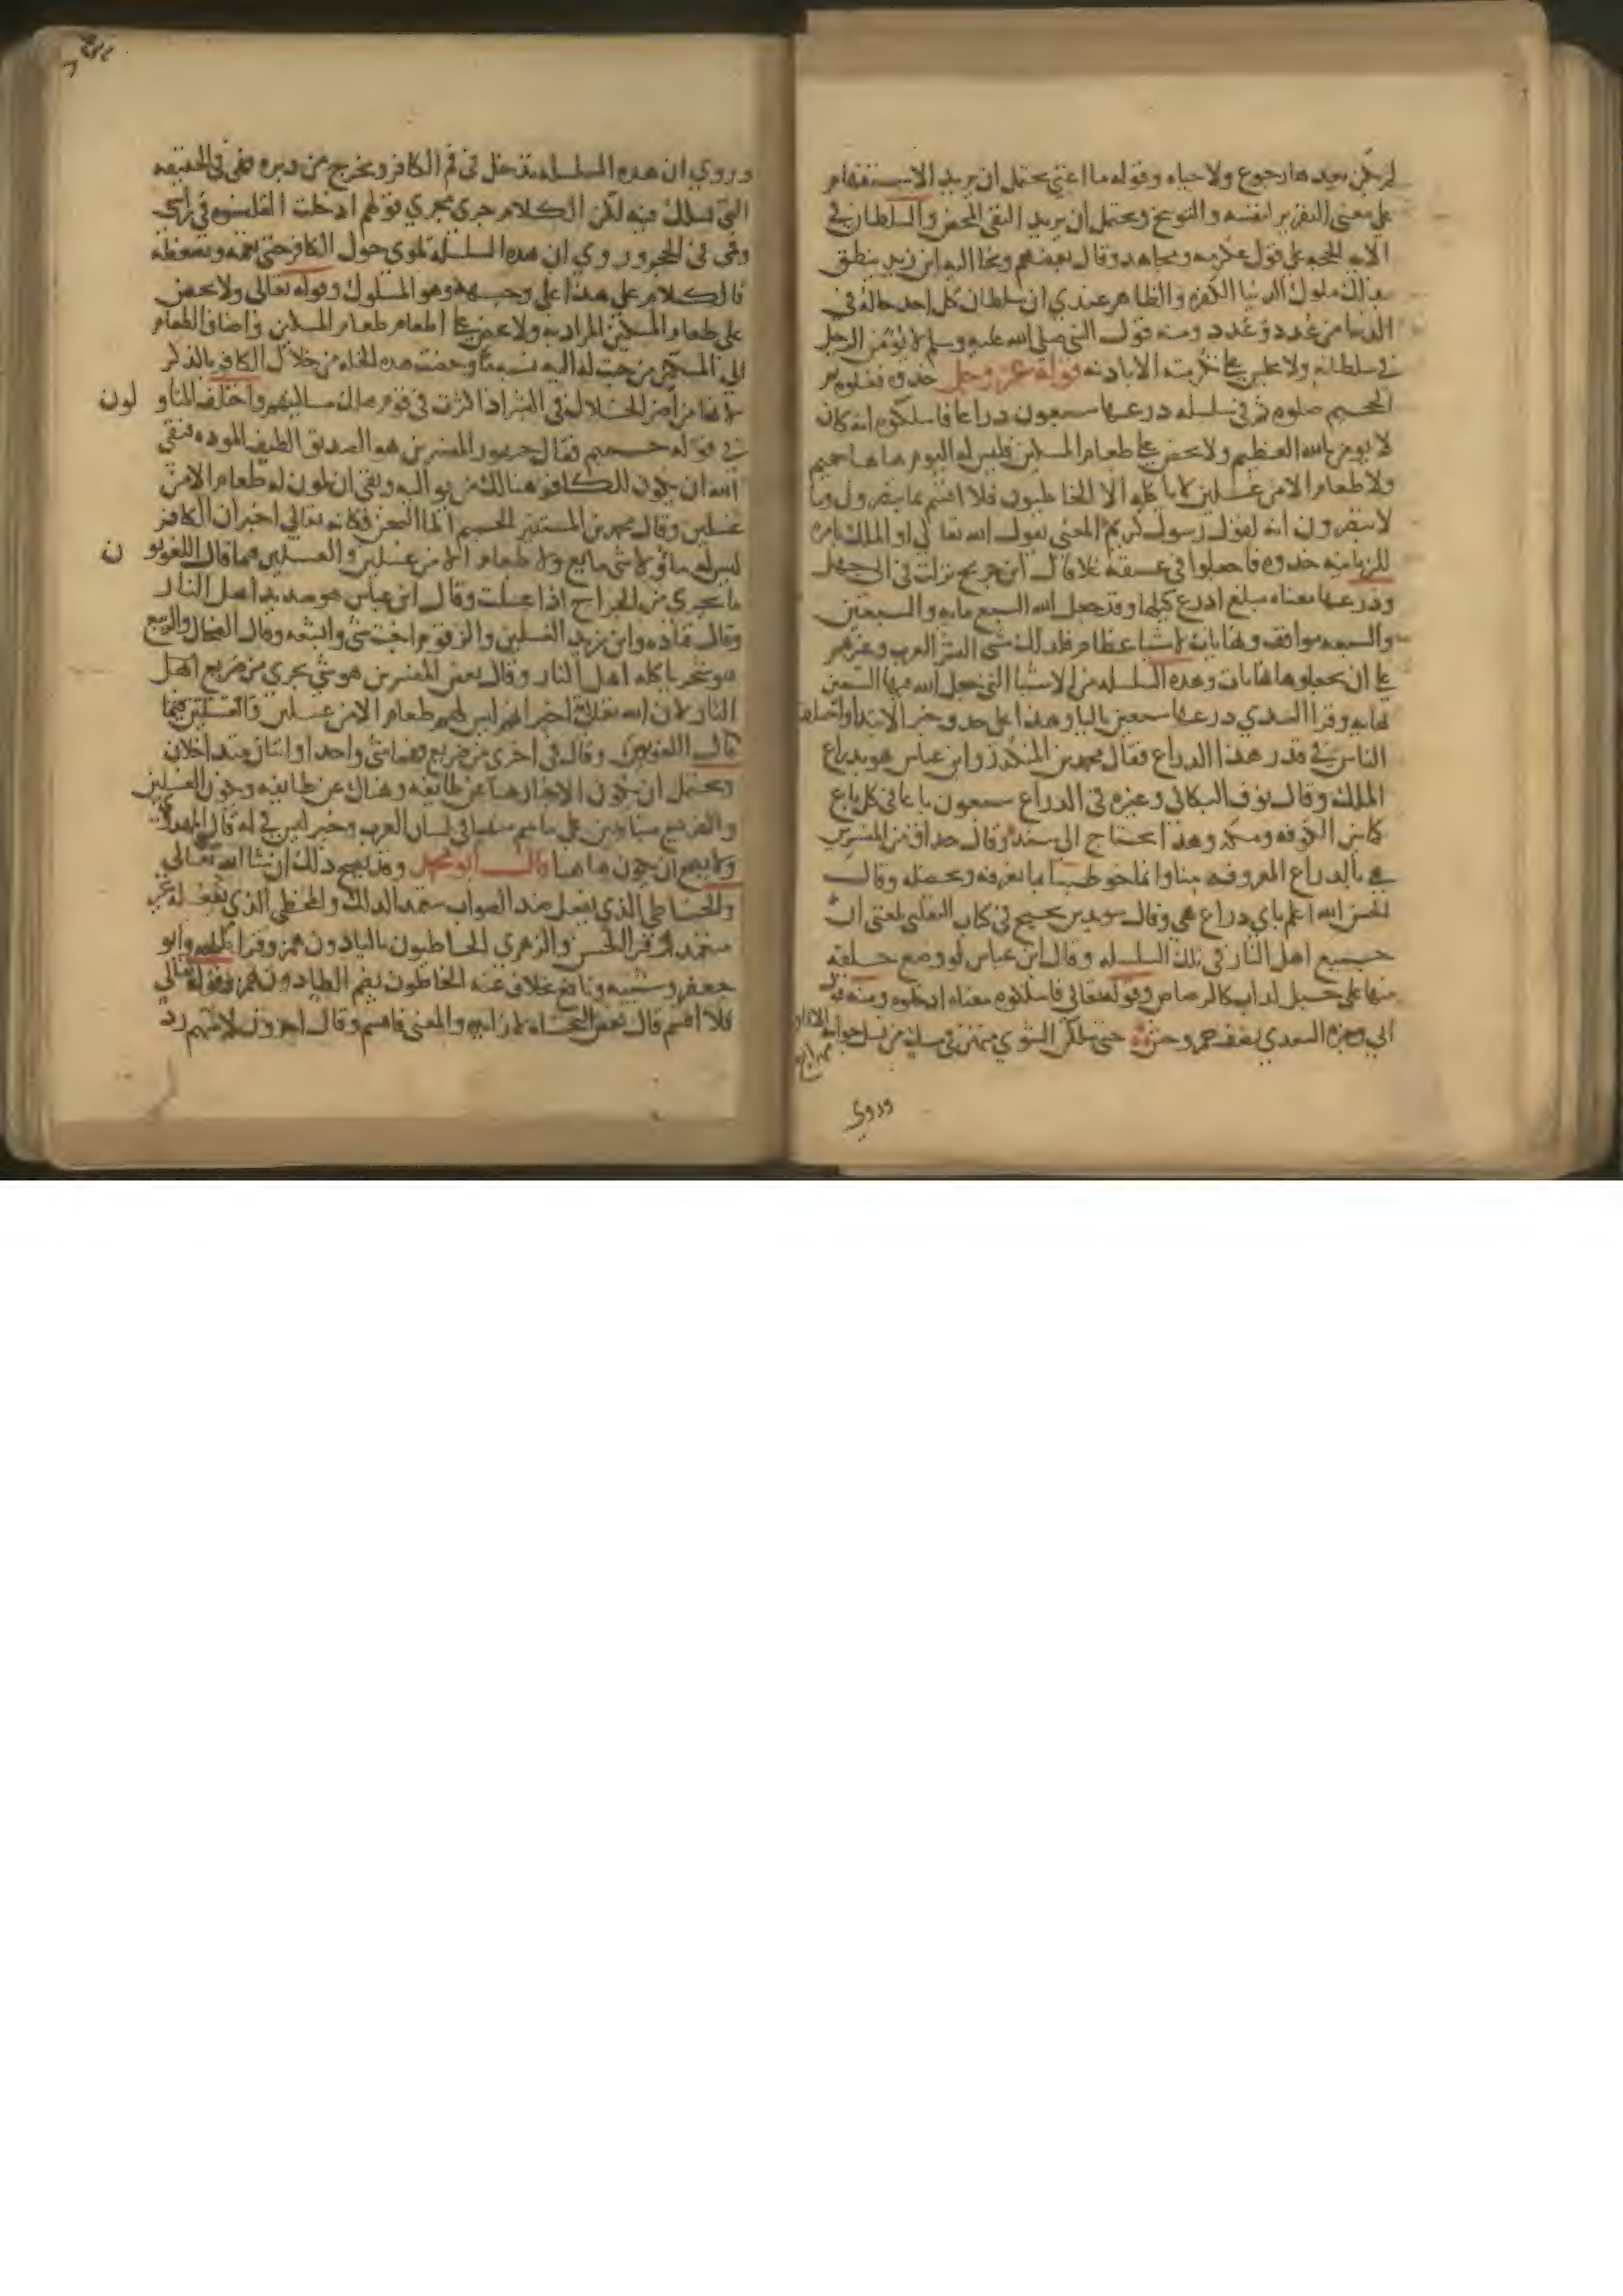 لم يكن بعدها رجوع ولا حياه وقوله ما اغني يحتمل ان يريد الاستفهام
على معنى التقرير لنفسه والتوبيخ ويحتمل ان يريد النفي المحض والسلطان في
الايه الحجه على قول عكرمه ومجاهد وقال بعضهم ونحا اليه ابن زيد ينطق
بذلك ملوك الدنيا الكفره والظاهر عندي ان سلطان كل احد حاله في
الدنيا من عدد وعدد ومنه قول النبي صلى الله عليه وسلم لا يؤمن الرجل
في سلطانه ولا يجلس على تكرمته الا باذنه قوله عز وجل خذوه فغلوه ثم
الجحيم صلوه ثم في سلسله ذرعها سبعون ذراعا فاسلكوه انه كان
لا يومن بالله العظيم ولا يحض على طعام المسكين فليس له اليوم هاهنا حميم
ولا طعام الا من غسلين لا ياكله الا الخاطيون فلا اقسم بما تبصرون وما
لا تبصرون انه لقول رسول كريم المعنى يقول الله تعالى او الملك بامره
للزبانيه خذوه فاجعلوا في عنقه غلا قال ابن جريج نزلت في ابي جهل
وذرعها معناه مبلغ اذرع كيلها وقد جعل الله السبع مايه والسبعين
والسبعه مواقف ونهايات لاشيا عظام فلذلك مشى البشر العرب وغيرهم
على ان يجعلوها نهايات وهذه السلسله من الاشيا التي جعل الله فيها السبعين
نهايه وقرا السدي ذرعها سبعين باليا وهذا على حذف خبر الابتدا واختلف
الناس في قدر هذا الذراع فقال محمد بن المنكدر وابن عباس هو بذراع
الملك وقال نوف البكالي وغيره في الذراع سبعون باعا في كل باع
كما بين الكوفه ومكه وهذا يحتاج الى سند وقال حذاق من المفسرين
هي بالذراع المعروفه هنا وانما خوطبنا بما نعرفه ونحصله وقال
الحسن الله اعلم باي ذراع هي وقال سويد بن نجيح في كتاب الثعلبي بلغني ان
جميع اهل النار في تلك السلسله وقال ابن عباس لو وضع حلقه
منها على جبل لذاب كالرصاص وقوله تعالى فاسلكوه معناه ادخلوه ومنه قول
ابي وجزه السعدي يصف حمر وحش حتى سلكن الشوي منهن في مسك من نسل جوابه الافاق
مهداج
وروي
وروي ان هذه السلسله تدخل في فم الكافر وتخرج من دبره فهي في الحقيقه
التي تسلك فيه لكن الكلام جرى مجرى قولهم ادخلت القلنسوه في راسي
وفمي في الحجر وروي ان هذه السلسله تلوى حول الكافر حتى تعمه وتضغطه
فالكلام على هذا على وجهه وهو المسلوك وقوله تعالى ولا يحض
على طعام المسكين المراد به ولا يحض على اطعام طعام المسكين واضاف الطعام
الى المسكين من حيث له اليه نسبه ما وخصت هذه الخله من خلال الكافر بالذكر
لانها من اضر الخلال في البشر اذا كثرت في قوم هلك مساكينهم واختلف المتاولون
في قوله حميم فقال جمهور المفسرين هو الصديق اللطيف الموده فنفى
الله ان يكون للكافر هنالك من يواليه ونفى ان يكون له طعام الا من
غسلين وقال محمد بن المستنير الحميم الما السخن فكانه تعالى اخبر ان الكافر
ليس له ما ولا شي مايع ولا طعام الا من غسلين والغسلين فيما قال اللغويون
ما يجري من الجراح اذا غسلت وقال ابن عباس هو صديد اهل النار
وقال قتاده وابن زيد الغسلين والزقوم اخبث شي وابشعه وقال الضحاك والربيع
هو شجر ياكله اهل النار وقال بعض المفسرين هو شي يجري من ضريع اهل
النار لان الله تعالى اخبر انهم ليس لهم طعام الا من غسلين والغسلين فيما
قال اللغويون وقال في اخرى من ضريع فهما شي واحد او اثنان متداخلان
ويحتمل ان يكون الاخبار هنا عن طايفه وهناك عن طايفه ويكون الغسلين
والضريع متباينين على ما يفهم منهما في لسان العرب وخبر ليس في له قال المهدوي
ولا يصح ان يكون هاهنا قال ابو محمد وقد يصح ذلك ان شا الله تعالى
والخاطي الذي يفعل ضد الصواب متعمدا لذلك والمخطي الذي يفعله غير
متعمد وقرا الحسن والزهري الخاطيون باليا دون همز وقرا طلحه وابو
جعفر وشيبه ونافع بخلاف عنه الخاطون بضم الطا دون همز وقوله تعالى
فلا اقسم قال بعض النحاه لا زايده والمعنى فاقسم وقال اخرون لا منهم رد